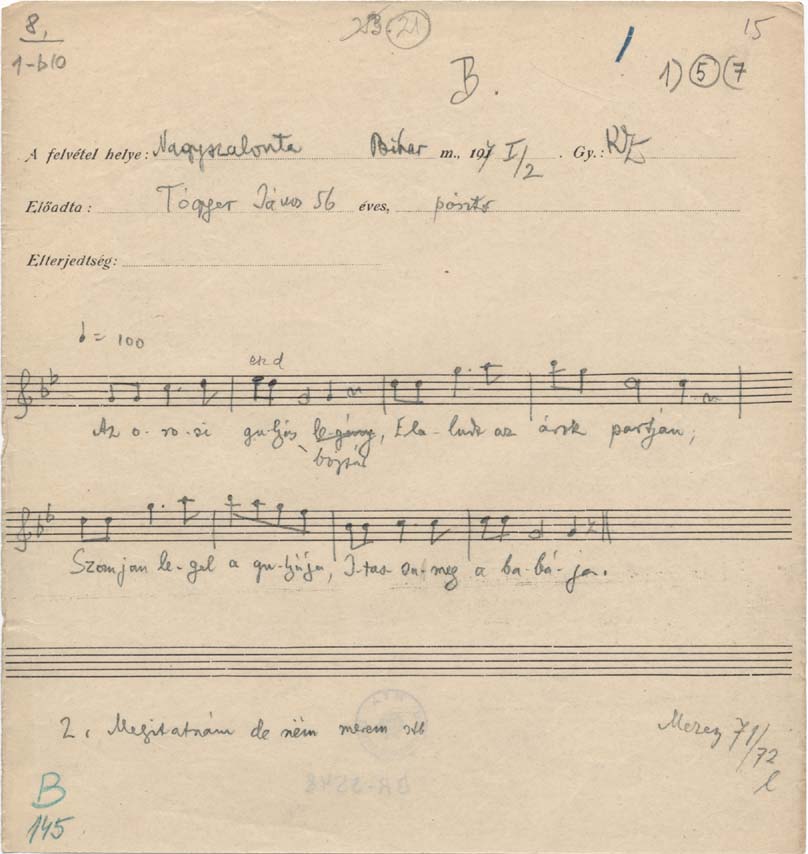 8, 23.21 15
1-b10 B. 1) 5 (7
A felvétel helye: Nagyszalonta Bihar m., 1917 I/2. Gy.: KZ
Előadta: János 56 éves,
Elterjedtség:
= 100
Az o-ro-si gu-lyás le-gény, Ela-ludt az árok partján,
bojtár
Szomjan le-gel a gu-lyája, I-tas-sa meg a ba-bá-ja.
2. Megitatnám de nëm merem stb
Mezey 71/72
l
B
145